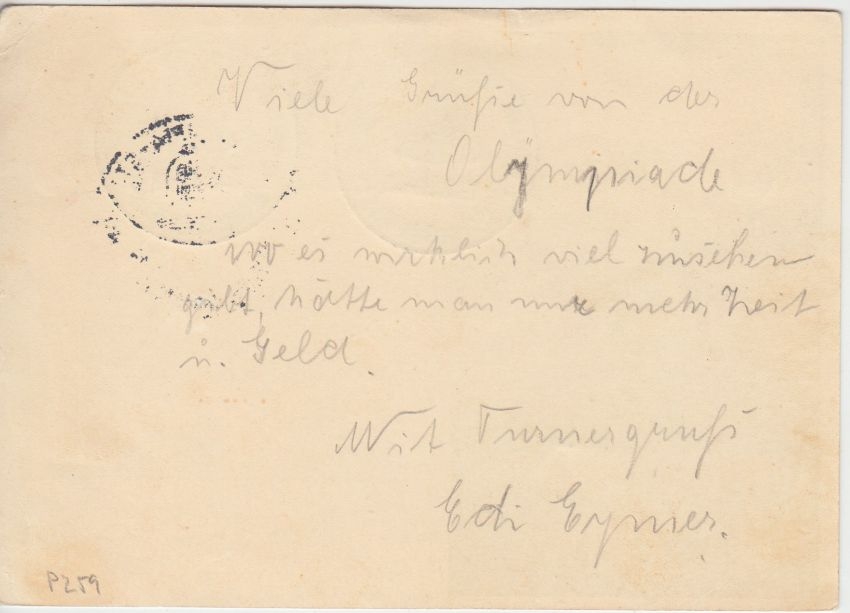 Viele Grüße von der
Olympiade
wo es wirklich viel zusehen
gibt, hätte man nur mehr Zeit
u. Geld.
Mit Turnergruß
Edi Eymer.
P259